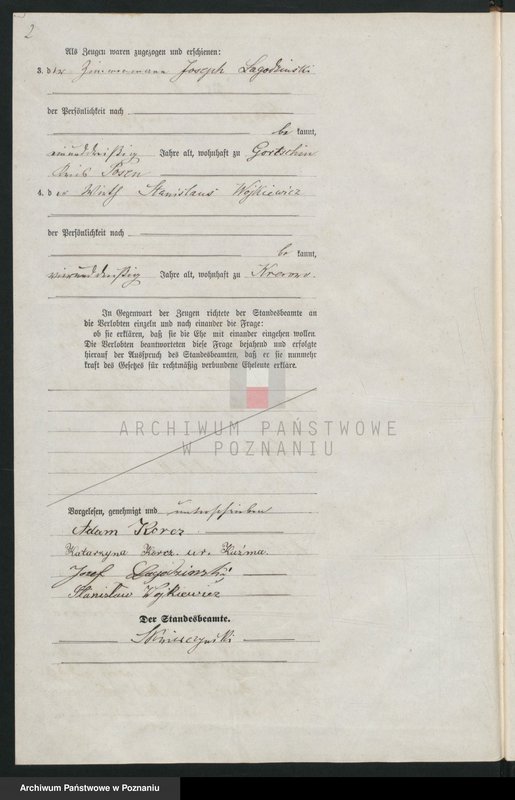 2
Als Zeugen waren zugezogen und erschienen:
3. der Zimmermann Joseph Lagodzinski
der Persönlichkeit nach
be kannt,
einunddreißig Jahre alt, wohnhaft zu Gortschin
Kreis Posen
4. d er Wirth Stanislaus Wojkiewicz
der Persönlichkeit nach
be kannt,
vierunddreißig Jahre alt, wohnhaft zu
In Gegenwart der Zeugen richtete der Standesbeamte an
die Verlobten einzeln und nach einander die Frage:
ob sie erklären, daß sie die Ehe mit einander eingehen wollen.
Die Verlobten beantworteten diese Frage bejahend und erfolgte
hierauf der Ausspruch des Standesbeamten, daß er sie nunmehr
kraft des Gesetzes für rechtmäßig verbundene Eheleute erkläre.
ARCHIWUM PAŃSTWOWE
W POZNANIU
Vorgelesen, genehmigt und unterschrieben
Adam Korcz
Katarzyna Korcz. ur. Kuźma.
Jozef Lagodzinski
Stanisław Wojkiewicz
Der Standesbeamte.
Archiwum Państwowe w Poznaniu